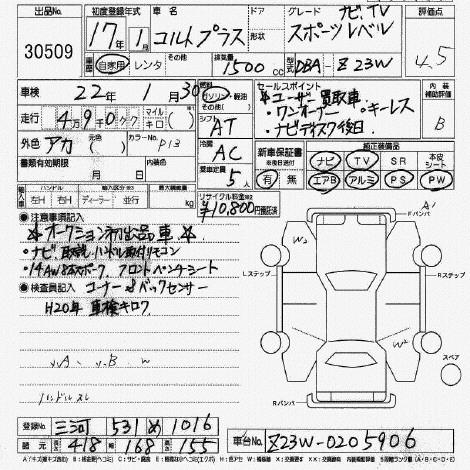 出品No. 初度登録年式 車名 ドア グレード ナビ、TV 評価点
30509 17年1月 コルトプラス 形状 スポーツレベル 4.5
車歴 自家用 レンタ その他( ) 排気量 1500cc 型式 DBA-Z23W
車検 22年1月30日 燃料 ガソリン・軽油 その他( ) セールスポイント 内装補助評価
走行 マイル キロ ( ) シフト AT ＊ユーザー買取車 B
・ワンオーナー ・キーレス
・ナビディスク後日
外色 アカ 元色( ) カラーNo. P13 冷房 AC
書類有効期限 月 日 内装色 乗車定員 5人
新車保証書 有 無 純正装備品 ナビ TV SR 本皮シート
エアB アルミ PS PW
輸入車 ハンドル 右 左 ディーラー 並行 最大積載量 kg リサイクル料金 ¥10,800 預託済
●注意事項記入
＊オークション初出品車＊
・ナビ取説 ハンドル取付リモコン
・14AW8本スポーク フロントベンチシート
●検査員記入 コーナー&バックセンサー
H20年 車検キロク
A B W
ハンドルスレ
A1 Fバンパ
W2
Lステップ Rステップ
W2
スペア
Rバンパ
登録No. 三河 531 め 1016
諸元 長 418 幅 168 高 155 車台No. Z23W-0205906